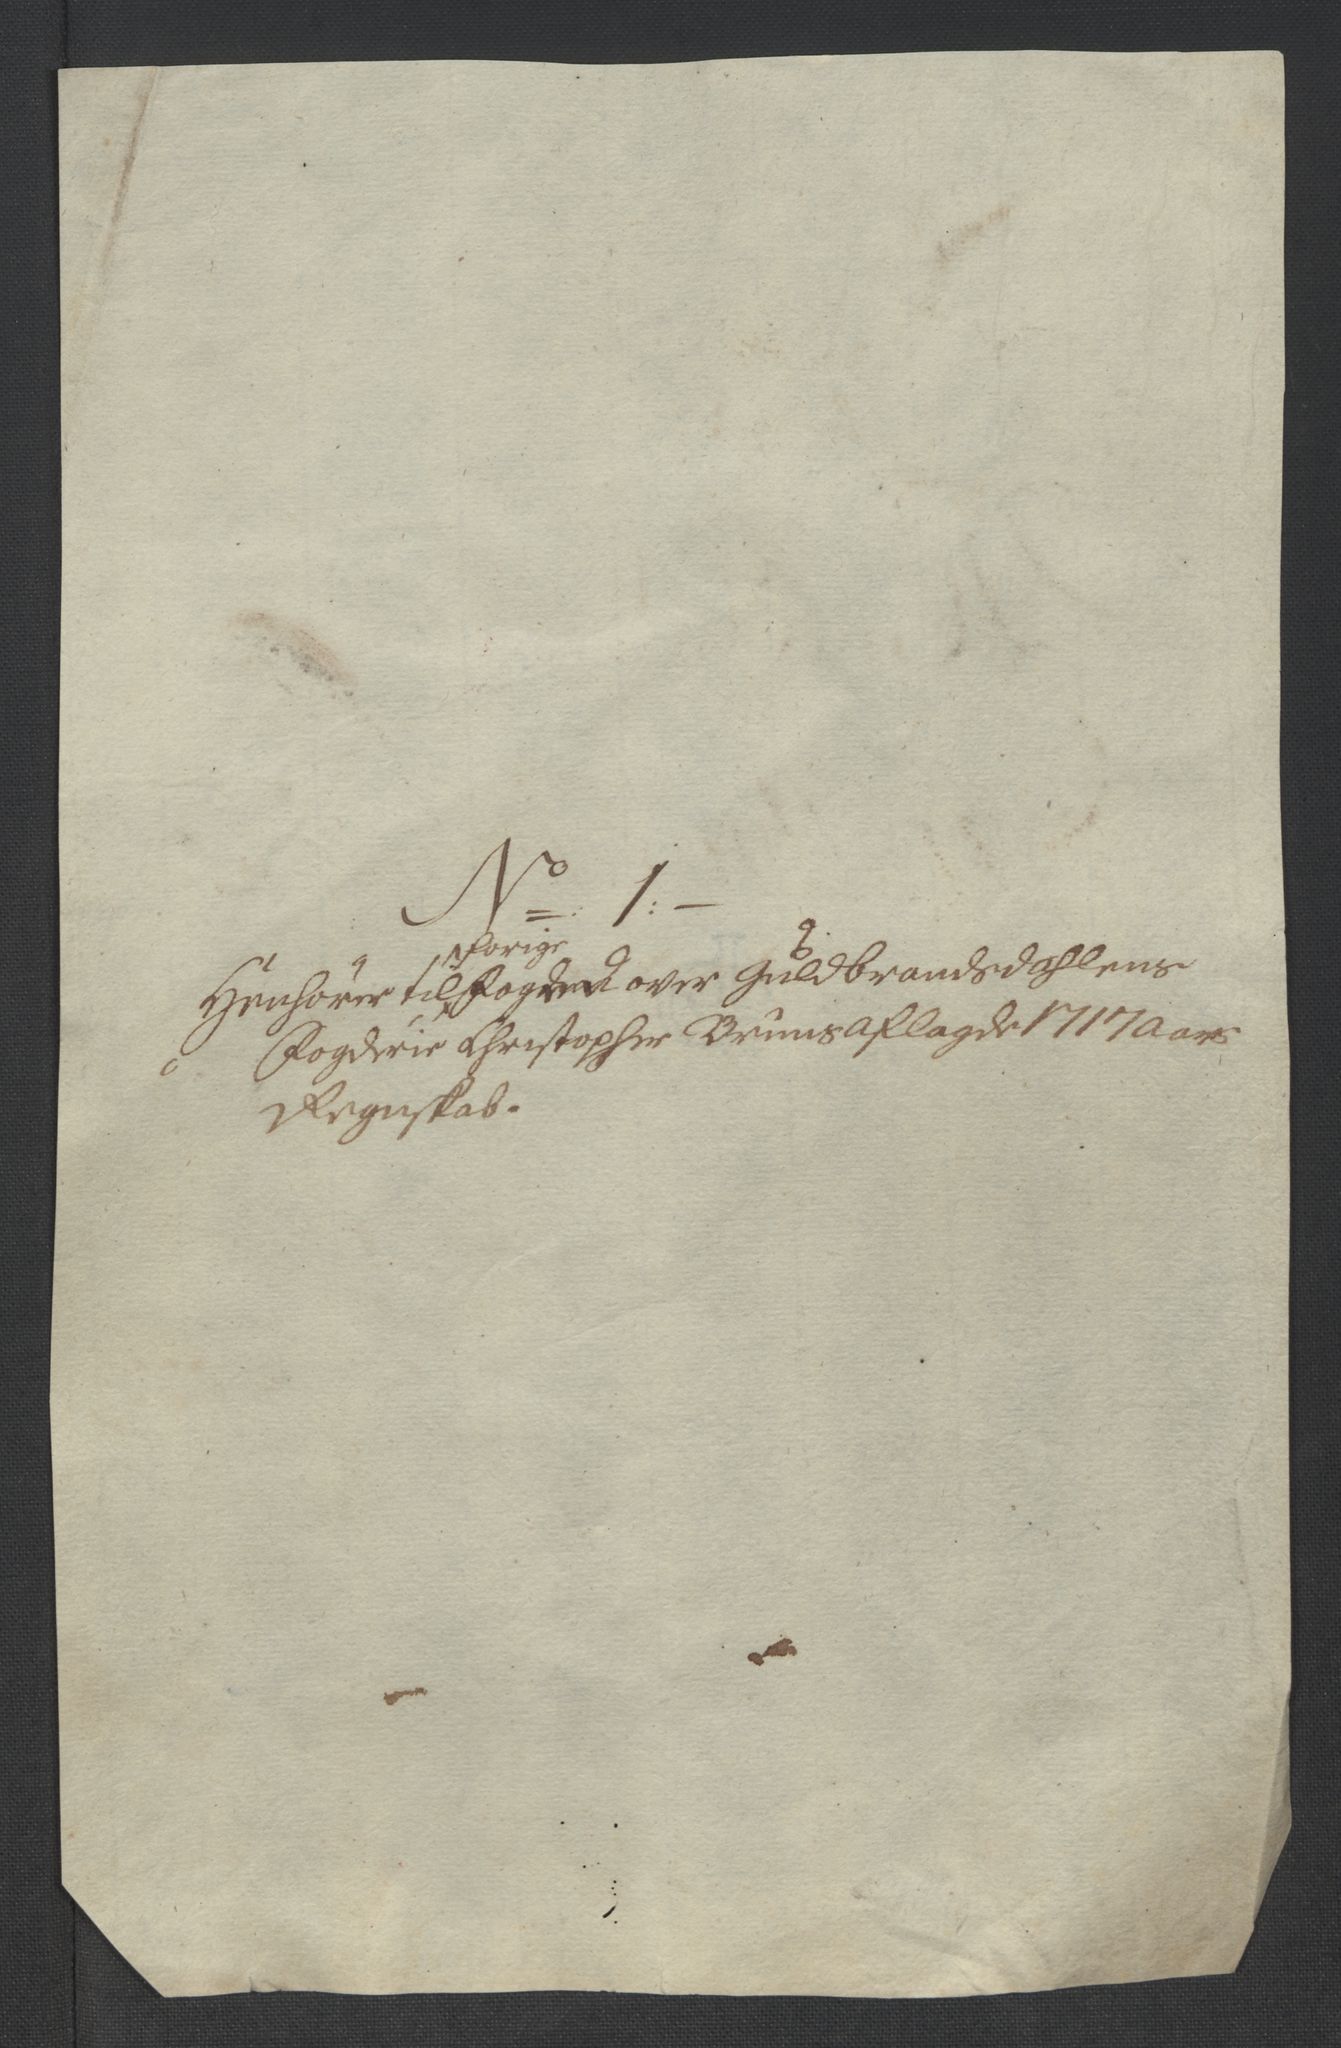 No. 1: –
forige
Henhörer til Fogden over Guldbrandsdahlens
Fogderie Christopher Bruns aflagde 1717 Aars
Regnskab.